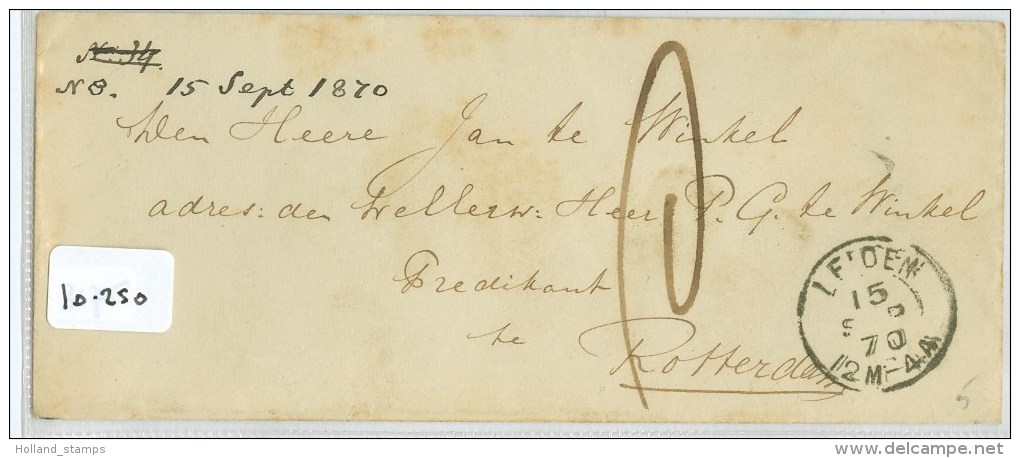 No. 34.
N 8. 15 Sept 1870
Den Heere Jan te Winkel
adres: den Weleerw: Heer P. G. te Winkel
Predikant
te
Rotterdam
LEIDEN
15
S
70
12M-4A
10.250
5
Holland_stamps
www.delcampe.net